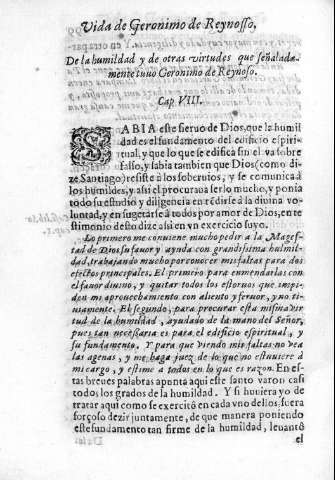 Vida de Geronimo de Reynosso,
De la humildad y de otras virtudes que señalada-
mente tuuo Geronimo de Reynoso.
Cap VIII.
SABIA este sieruo de Dios, que la humil
dad es el fundamento del edificio espiri-
tual, y que lo que se edifica sin el va sobre
falso, y sabia tambien que Dios (como di-
ze Santiago) resiste à los soberuios, y se comunica à
los humildes, y assi el procuraua serlo mucho, y ponia
todo su estudio y diligencia en rēdirse à la diuina vo-
luntad, y en sugetarse à todos por amor de Dios, en te-
stimonio desto dize assi en vn exercicio suyo.
Lo primero me conuiene mucho pedir a la Mages-
tad de Dios su fauor y ayuda con grandissima humil-
dad, trabajando mucho por conocer mis faltas para dos
efectos principales. El primero para enmendarlos con
el fauor diuino, y quitar todos los estoruos que impi-
den mi aprouechamiento con aliento y feruor, y no ti-
uiamente. El segundo, para procurar esta misma vir
tud de la humildad, ayudado de la mano del Señor,
pues tan necessaria es para el edificio espiritual, y
su fundamento. Y para que viendo mis faltas no vea
las agenas, y me haga juez de lo que no estuuiere à
mi cargo, y estime a todos en lo que es razon. En es-
tas breues palabras apunta aqui este santo varon casi
todos los grados de la humildad. Y si huuiera yo de
tratar aqui como se exercitò en cada vno dellos, fuera
forçoso dezir juntamente, de que manera poniendo
este fundamento tan firme de la humildad, leuantô
el